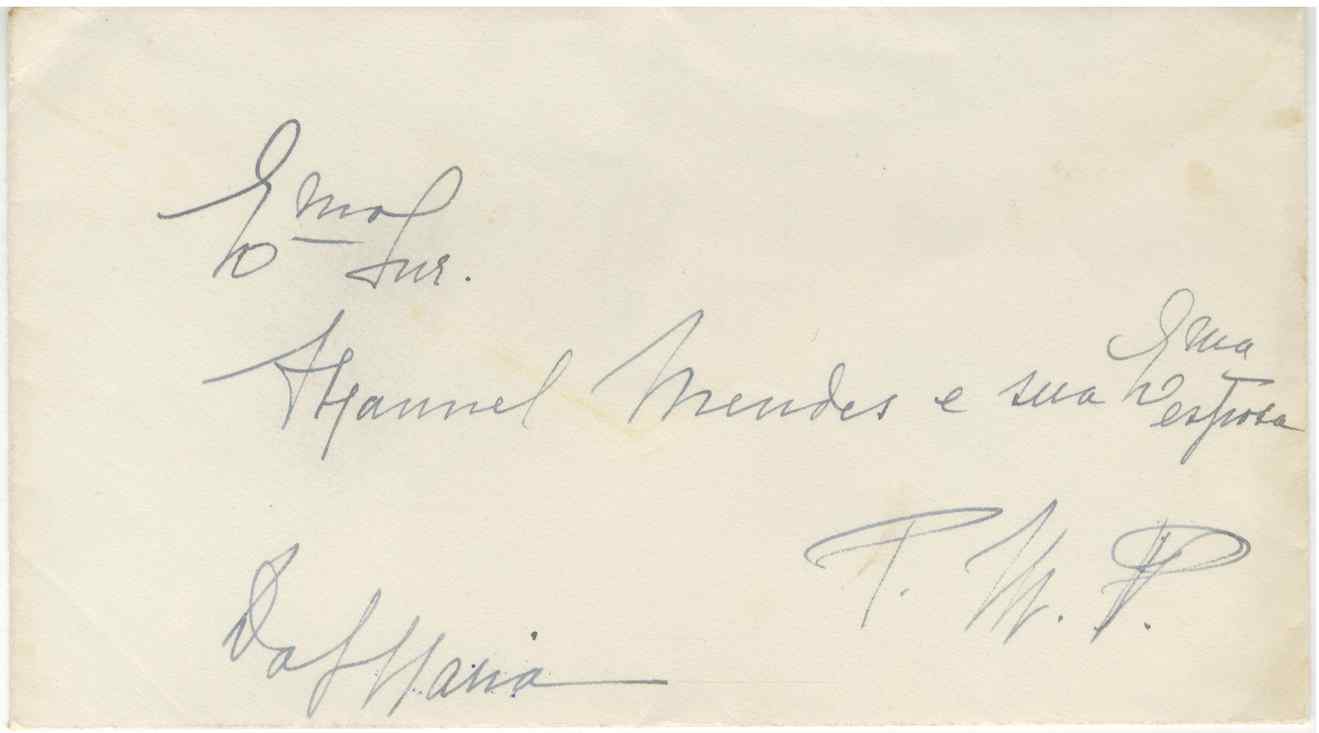 Exmo Snr.
Manuel Mendes e sua Exma esposa
P. M. P.
Da Maria